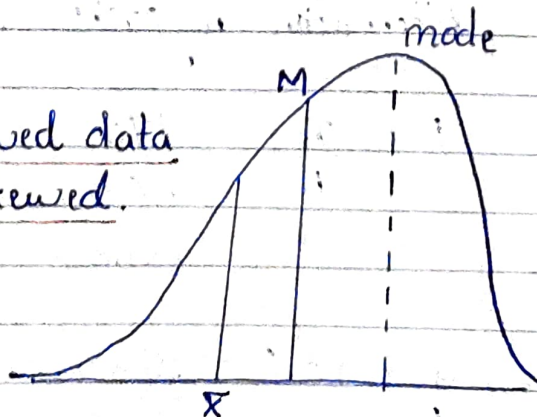 mode
M
ued data
ewed.
x̄